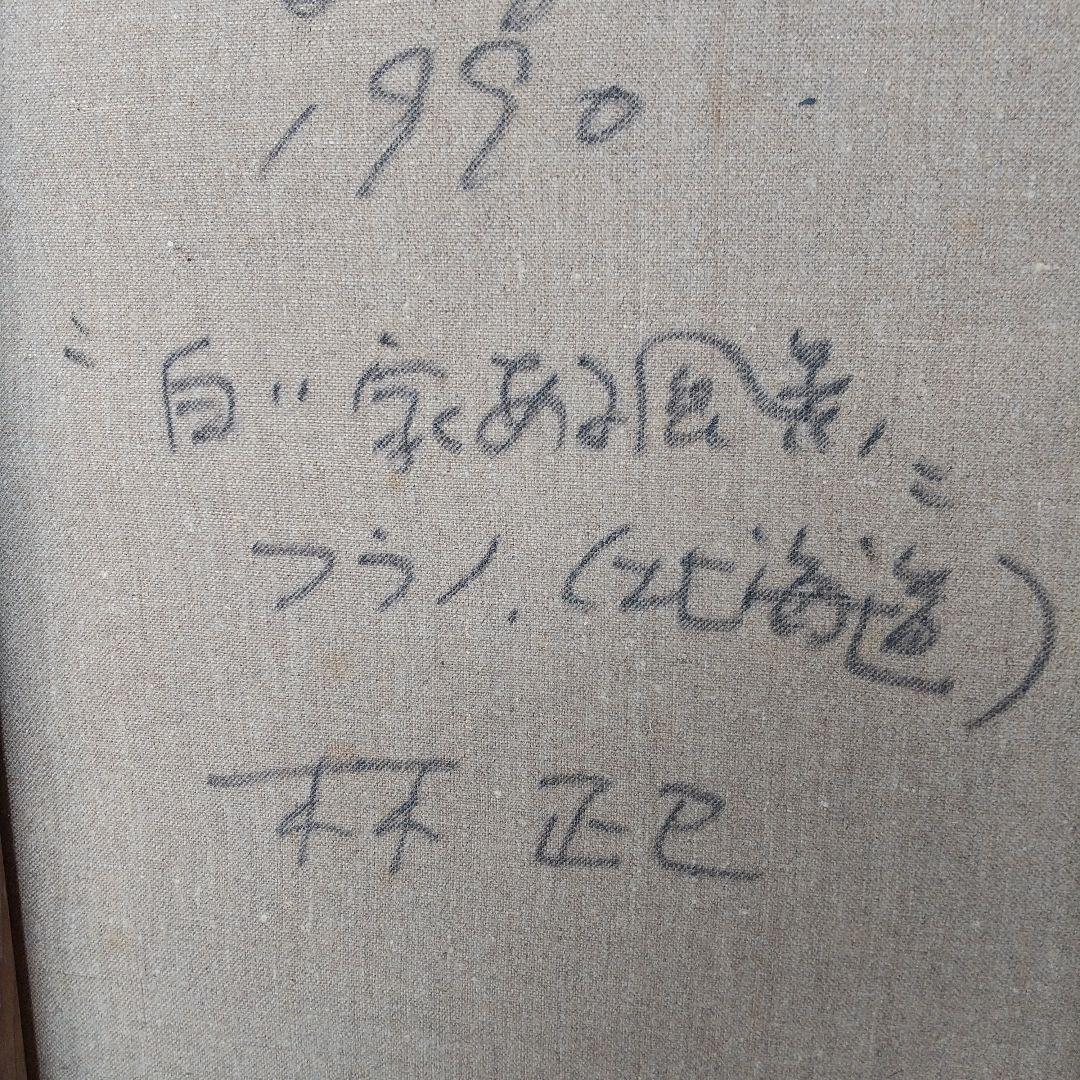 1990
"白い家ある風景"
フラノ.(北海道)
林 正巳